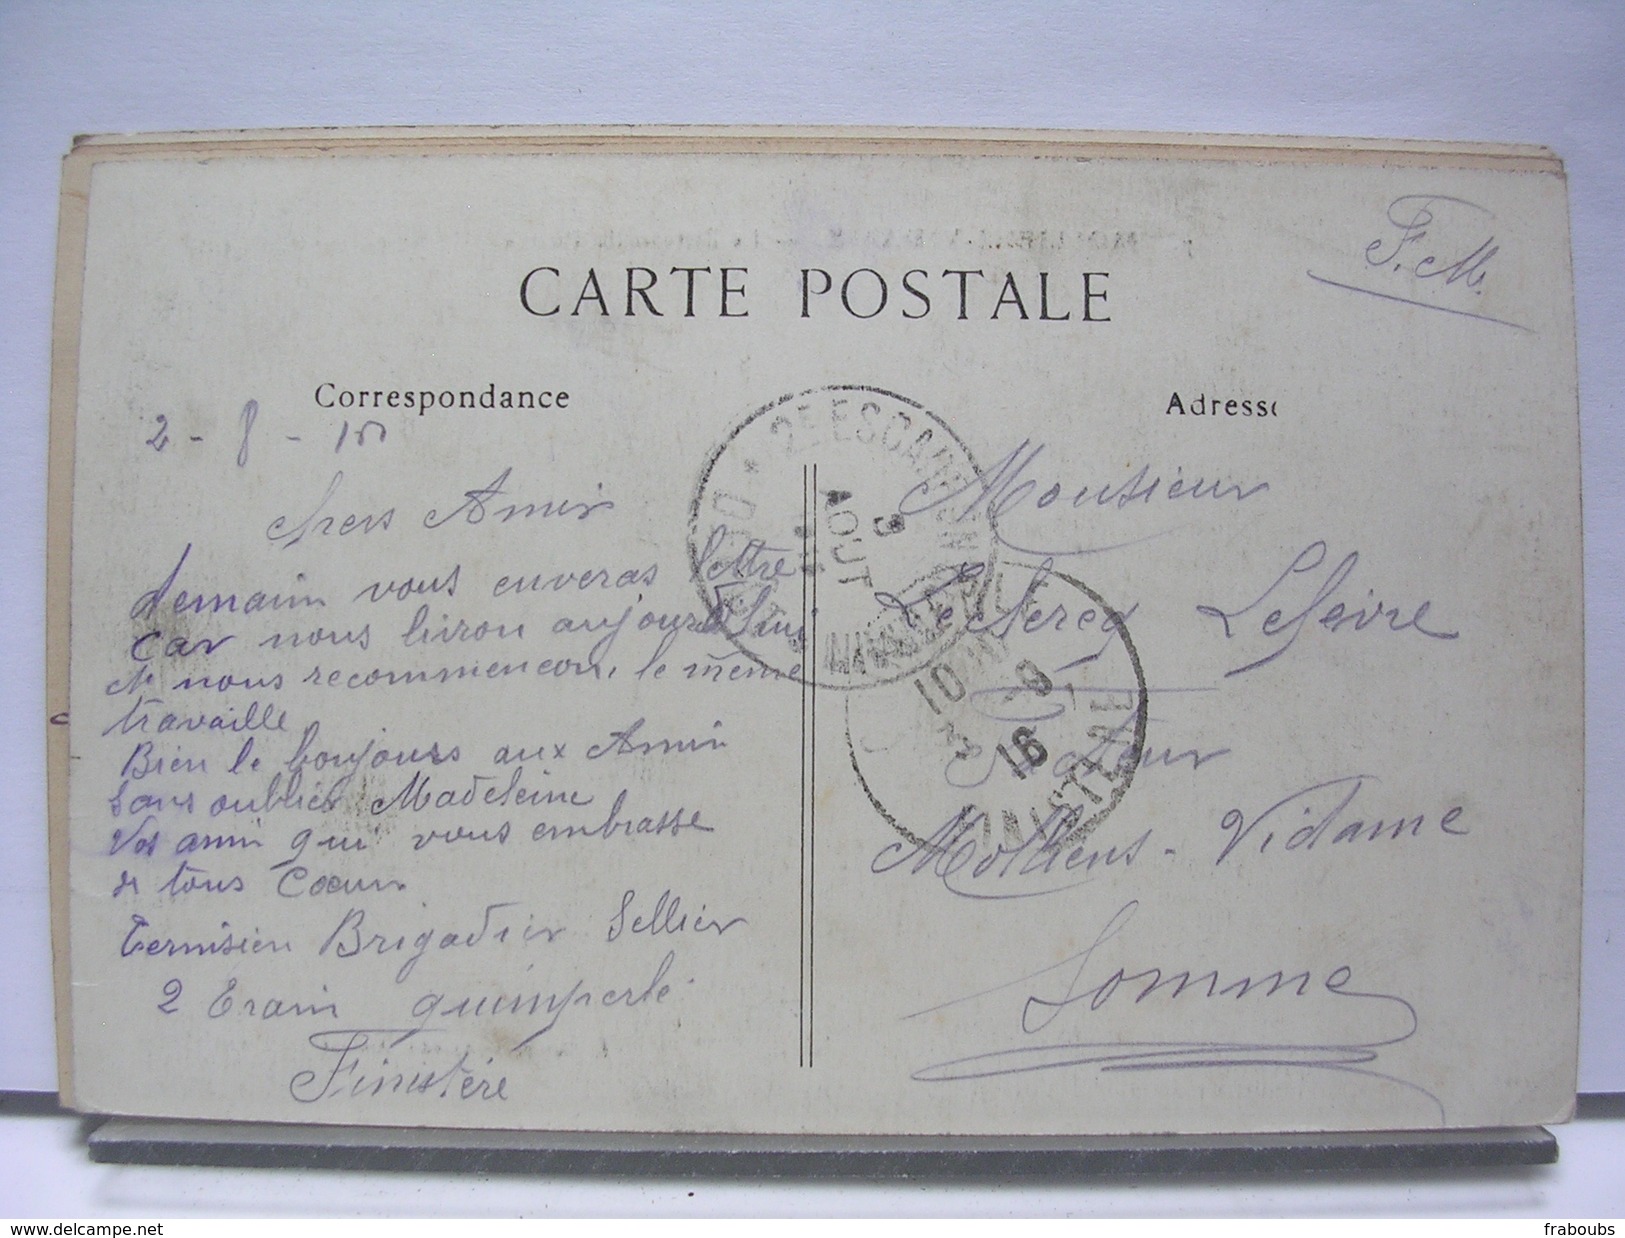 F.M.
CARTE POSTALE
Correspondance
Adresse
2 - 8 -
Chers Amis
demain vous enveras lettre
car nous livron aujourd'hui
et nous recommencons le même
travaille
Bien le boujours aux Amis
sans oublier Madeleine
Vos ami qui vous embrasse
de tous Coeur
Ternisien Brigadier Sellier
2 Train quimperlé
Finistère
Monsieur
Leclercq Lefeivre
Facteur
Molliens - Vidame
Somme
2E ESCADRON
3
AOUT
10
9
16
delcampe.net
fraboubs